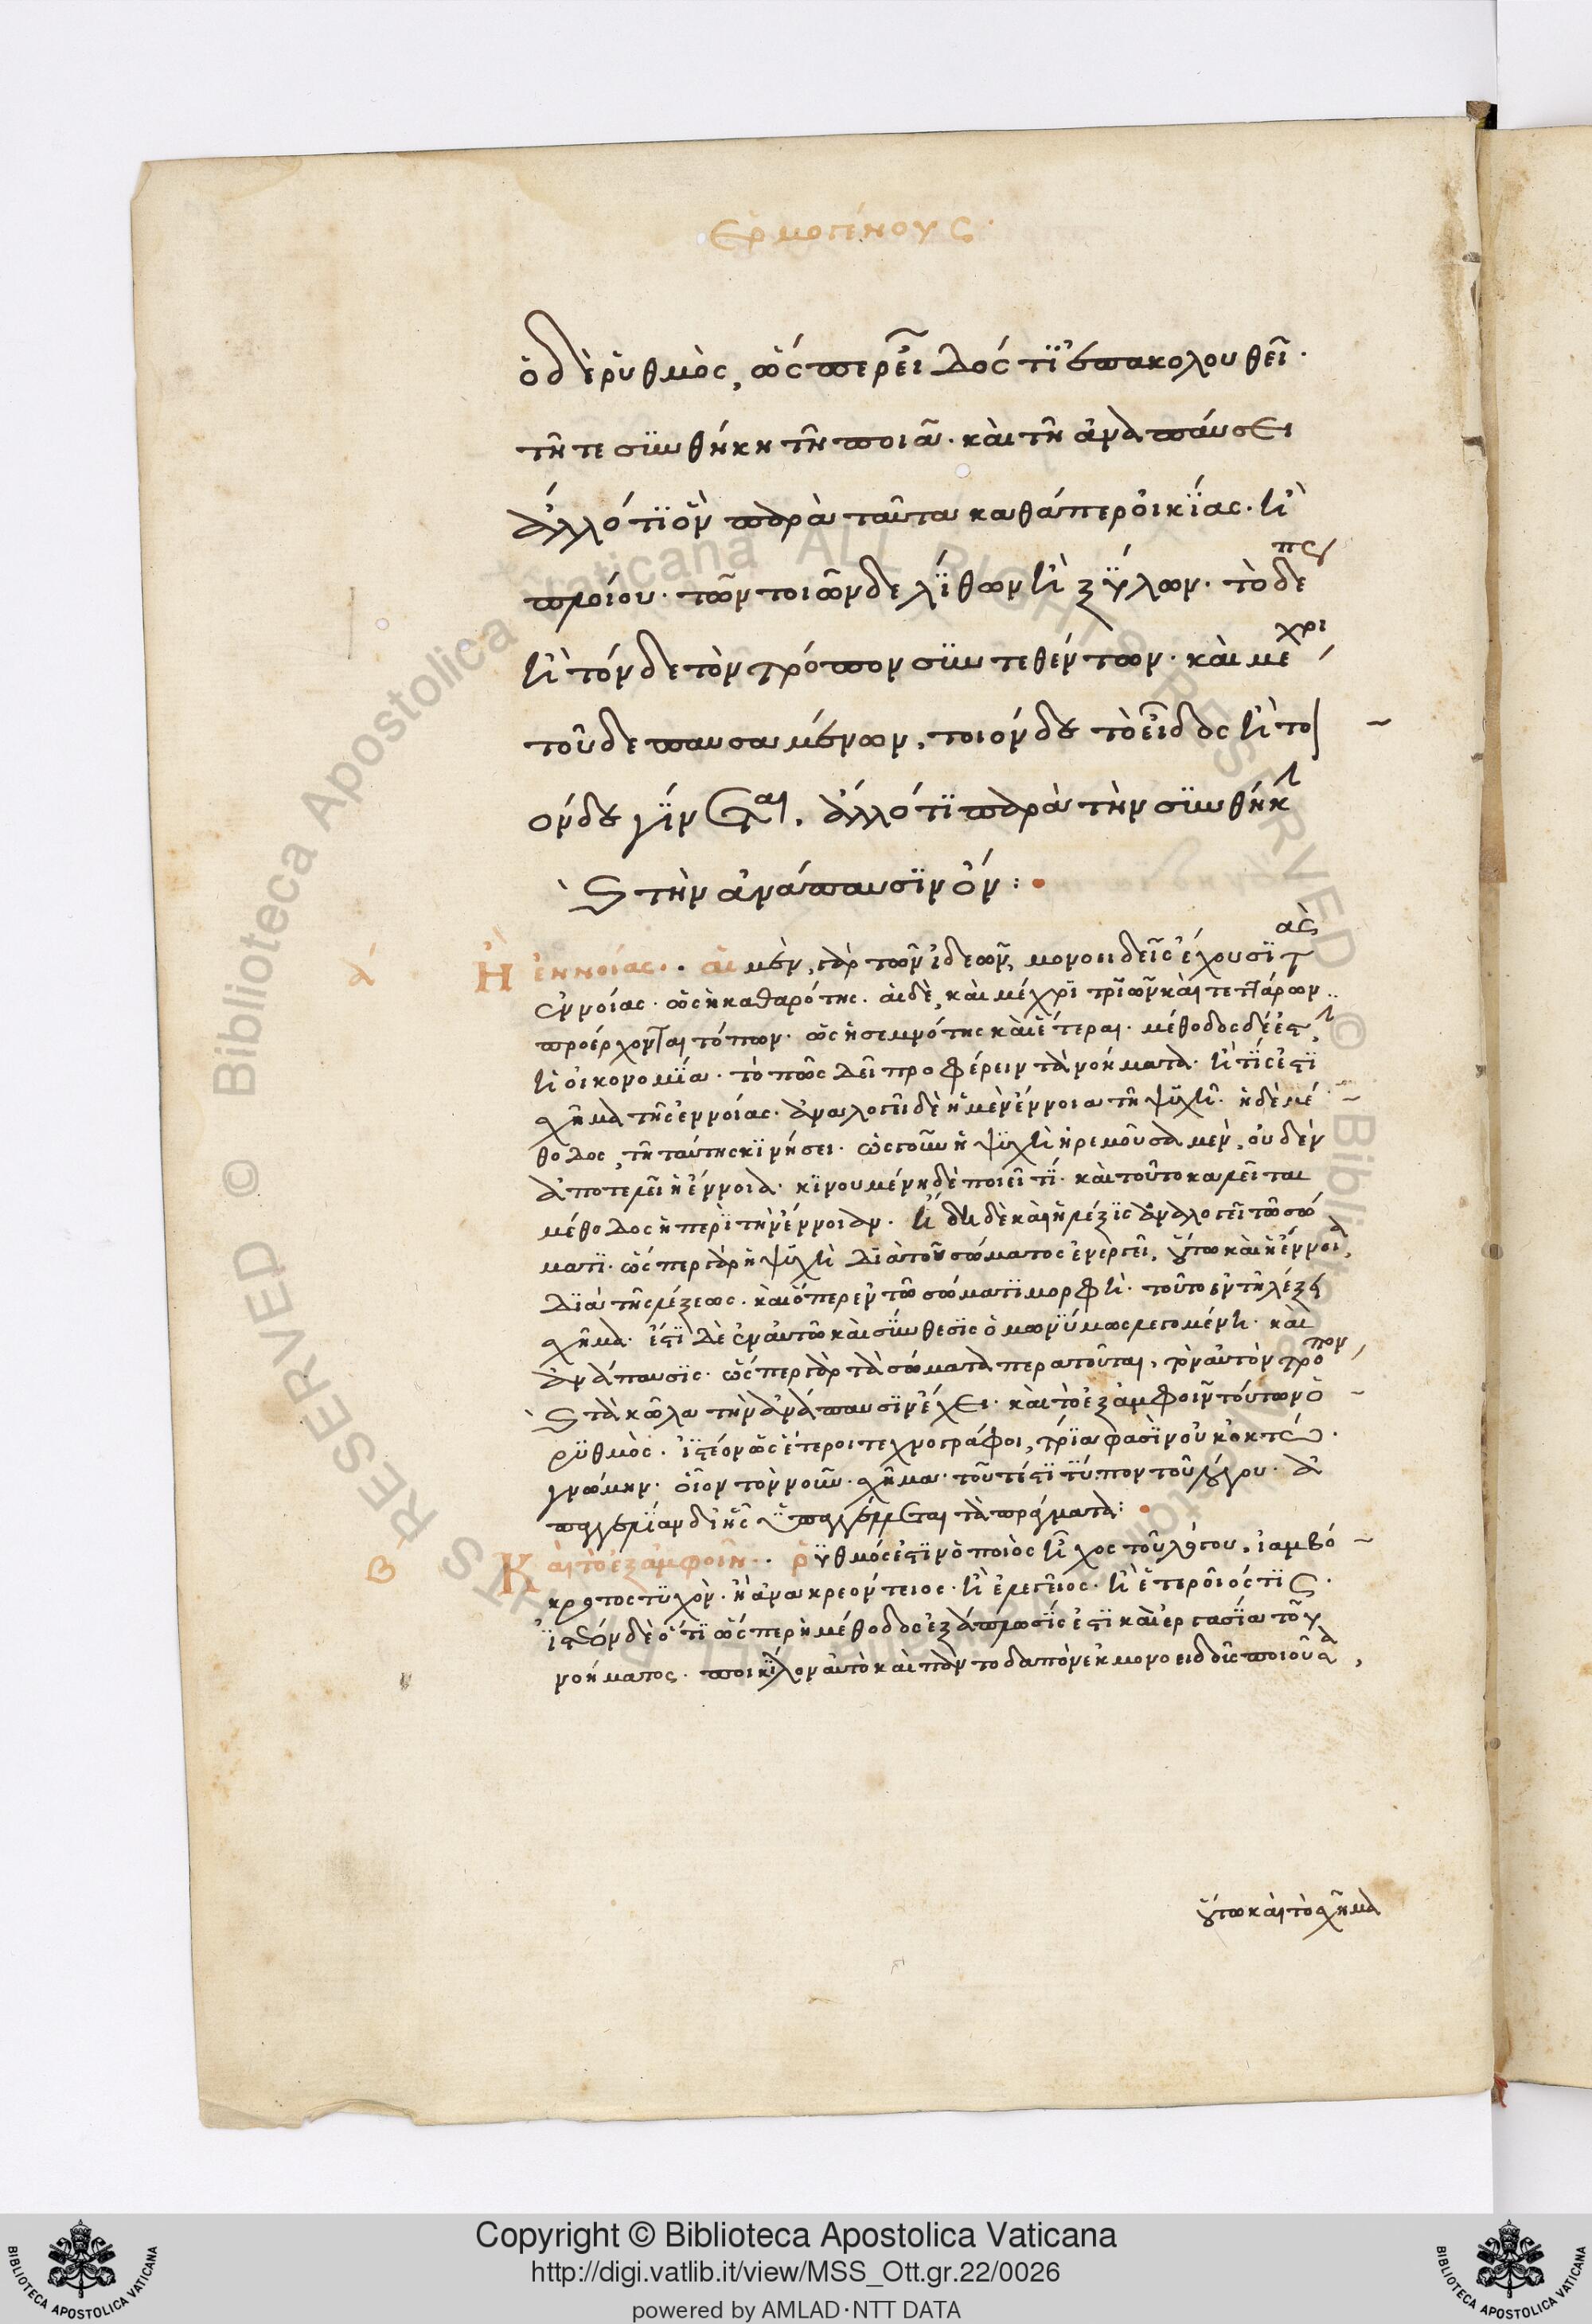 Ἑρμογένους.
ὁ δὲ ῥυθμὸς, ὥσπερ εἶδός τϊ ἐπακολουθεῖ·
τῆ τε σϋνθήκη τῆ ποιᾶ· καὶ τῆ ἀναπαύσει
ἄλλό τϊ ὂν παρὰ ταῦτα καθάπερ οἰκΐας· ἢ
πλοίου· τῶν τοιῶνδε λΐθων ἢ ξϋλων· τὸ δέ πς
ἢ τόνδε τὸν τρόπον σϋντεθέντων· καὶ μέχρι
τοῦδε παυσαμένων, τοιόνδε τὸ εἶδος ἢ τοι
όνδε γΐνεται, ἄλλό τϊ παρὰ τὴν σϋνθήκην
καὶ τὴν ἀνάπαυσϊν ὄν:
α
Ἢ ἐννοίας·· αἱ μὲν γὰρ τῶν ἰδεῶν, μονοειδεῖς ἔχουσϊ τὰς
ἐννοίας· ὡς ἡ καθαρότης· αἱ δὲ, καὶ μέχρϊ τρϊῶν καὶ τεττάρων
προέρχονται τόπων· ὡς ἡ σεμνότης καὶ ἕτεραι· μέθοδος δέ ἐστϊν
ἡ οἰκονομΐα· τὸ πῶς δεῖ προφέρειν τὰ νοήματα· ἢ τΐ ἐστϊ
σχῆμα τῆς ἐννοίας· ἀναλογεῖ δὲ ἡ μὲν ἔννοια τῆ ψϋχῆ· ἡ δὲ μέ
θοδος, τῆ ταύτης κϊνήσει· ὡς γοῦν ἡ ψϋχὴ ἠρεμοῦσα μὲν, οὐδὲν
ἀποτελεῖ ἡ ἔννοια· κϊνουμένη δὲ ποιεῖ τϊ· καὶ τοῦτο καλεῖται
μέθοδος ἡ περὶ τὴν ἔννοιαν· ἤδη δὲ καὶ ἡ λέξϊς ἀναλογεῖ τῶ σώ
ματϊ· ὥσπερ γὰρ ἡ ψϋχὴ δϊὰ τοῦ σώματος ἐνεργεῖ, οὕτω καὶ ἡ ἔννοια,
δϊὰ τῆς λέξεως· καὶ ὅπερ ἐν τῶ σώματϊ μορφὴ· τοῦτο ἐν τῆ λέξει
σχῆμα· ἔστϊ δὲ ἐν αὐτῶ καὶ σΰνθεσϊς ὁμωνΰμως λεγομένη· καὶ
ἀνάπαυσϊς· ὥσπερ γὰρ τὰ σώματα περατοῦται, τὸν αὐτὸν τρόπον
καὶ τὰ κῶλα τὴν ἀνάπαυσϊν ἔχει· καὶ τὸ ἐξ ἀμφοῖν τούτων ὁ
ρϋθμὸς· ἰστέον ὡς ἕτεροι τεχνογράφοι, τρΐα φασὶν οὐκ ὀκτώ·
γνώμην· οἷον τὸν νοῦν· σχῆμα· τουτέστϊ τΰπον τοῦ λόγου· ἀ
παγγελΐαν δι' ἧς ἀπαγγέλλεται τὰ πράγματα:
β
Καὶ τὸ ἐξ ἀμφοῖν·· ῥϋθμός ἐστϊν ὁ ποιὸς ἦχος τοῦ λόγου, ἰαμβό
κροτος τϋχὸν· ἢ ἀνακρεόντειος· ἢ ἐλεγεῖος· ἢ ἑτεροῖός τϊς·
ἰστέον δὲ ὅτϊ ὥσπερ ἡ μέθοδος ἐξάπλωσΐς ἐστϊ καὶ ἐργασΐα τοῦ
νοήματος· ποικΐλον αὐτὸ καὶ παντοδαπὸν ἐκ μονοειδοῦς ποιοῦσα,
οὕτω καὶ τὸ σχῆμα
Copyright © Biblioteca Apostolica Vaticana
http://digi.vatlib.it/view/MSS_Ott.gr.22/0026
powered by AMLAD·NTT DATA